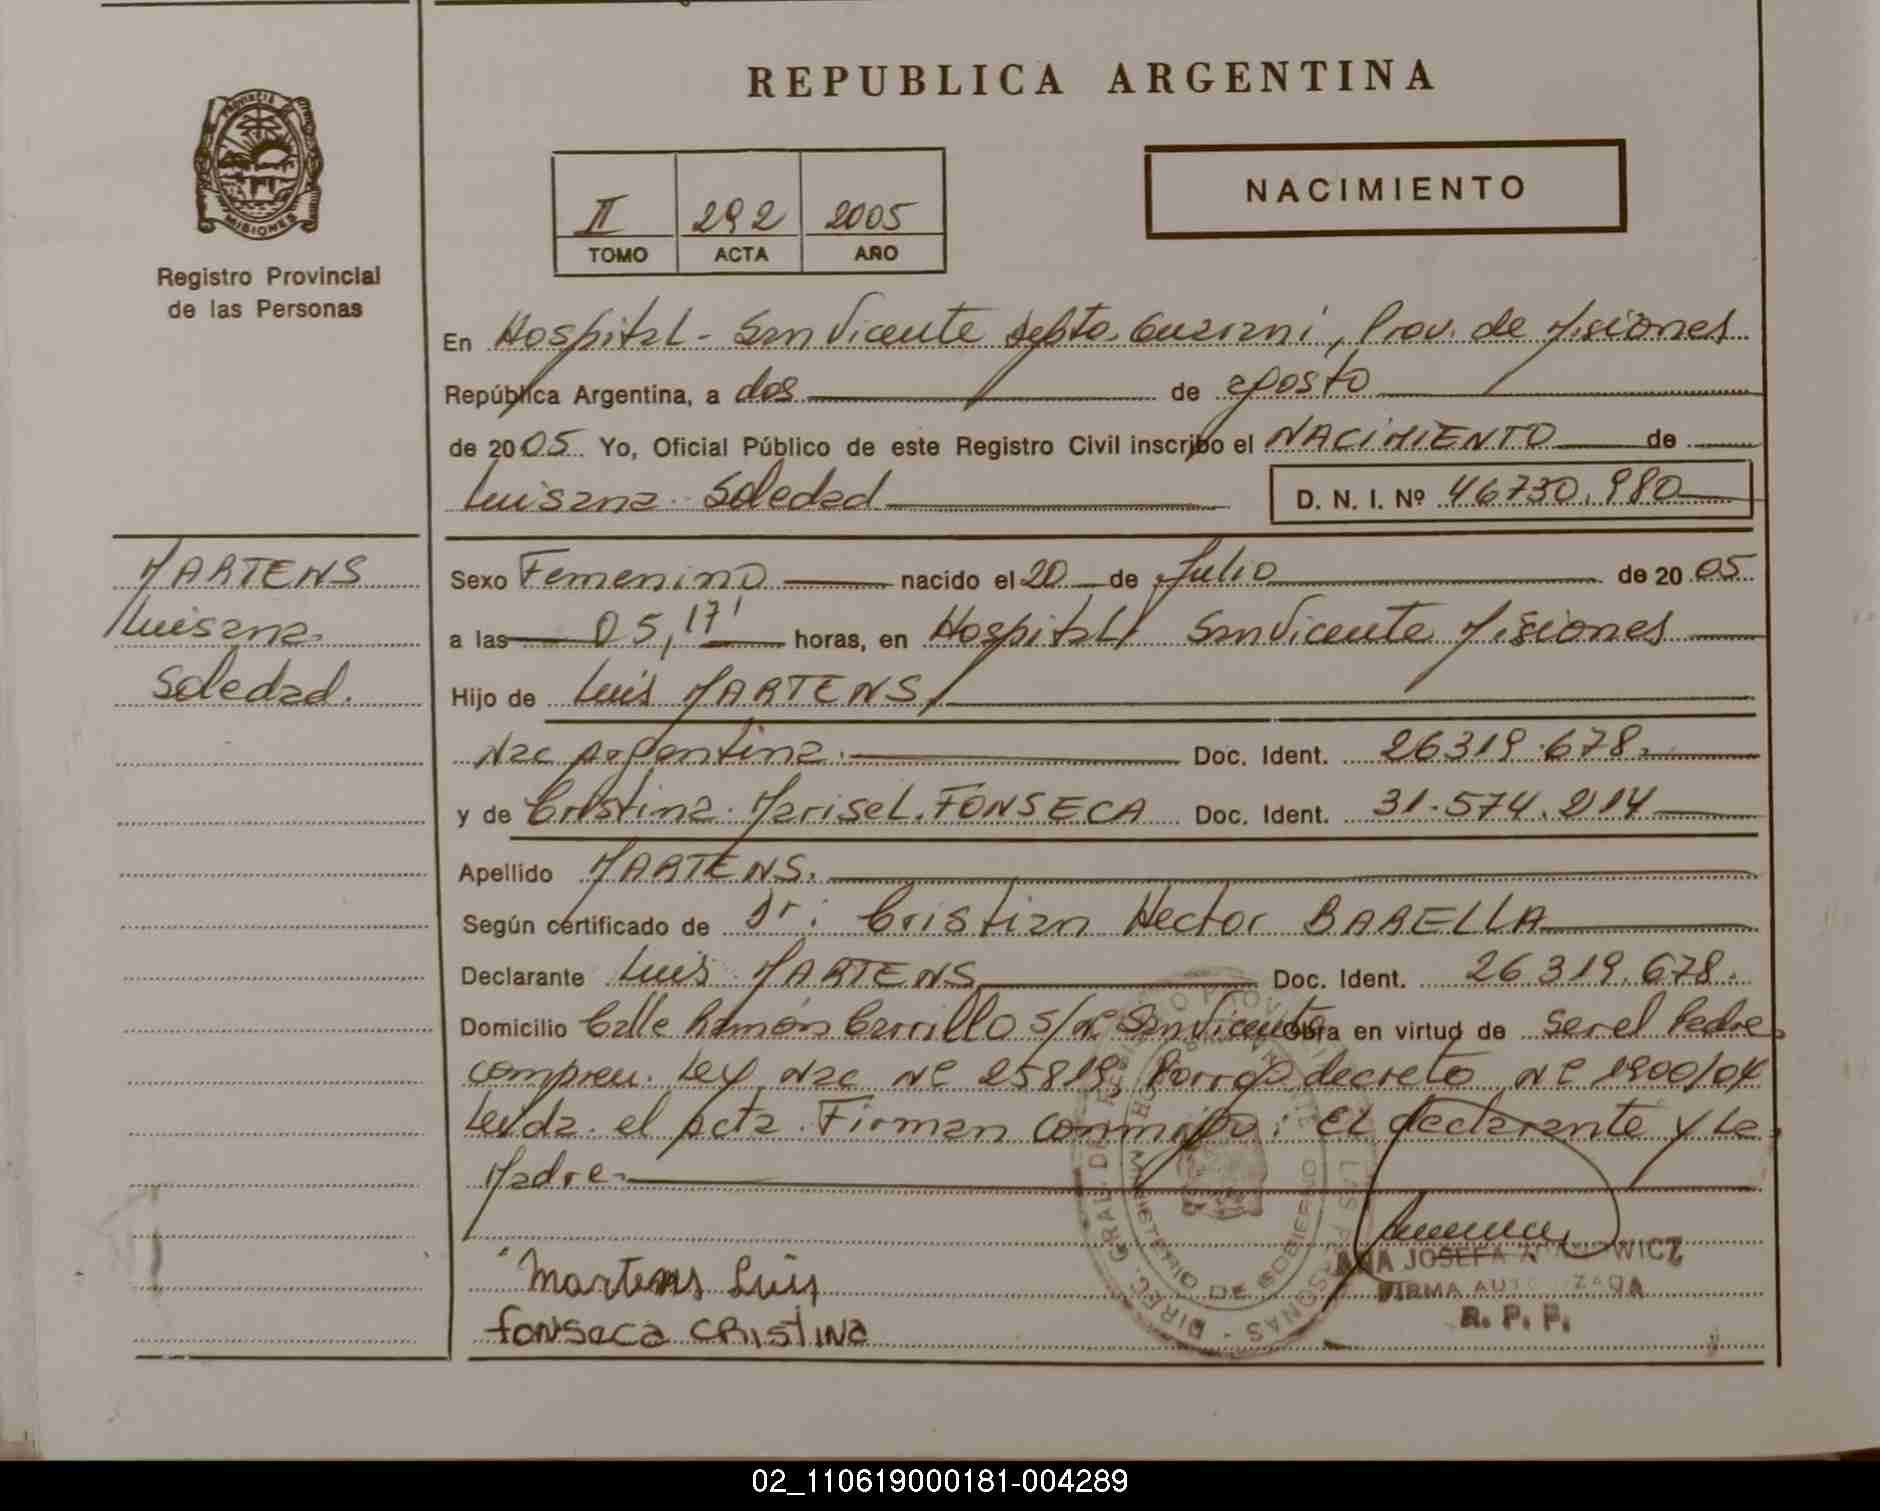 REPUBLICA ARGENTINA
PROVINCIA DE MISIONES
Registro Provincial
de las Personas
II 292 2005
TOMO ACTA AÑO
NACIMIENTO
En Hospital - San Vicente depto. Guarani, Prov. de Misiones
República Argentina, a dos de agosto
de 2005 Yo, Oficial Público de este Registro Civil inscribo el NACIMIENTO de
Luisana Soledad D. N. I. Nº 46730.980
MARTENS
Luisana
Soledad.
Sexo Femenino nacido el 20 de Julio de 2005
a las 05,17' horas, en Hospital San Vicente Misiones
Hijo de Luis MARTENS,
Nac argentina. Doc. Ident. 26319.678.
y de Cristina Marisel FONSECA Doc. Ident. 31.574.214
Apellido MARTENS.
Según certificado de Dr: Cristian Hector BARELLA
Declarante Luis MARTENS Doc. Ident. 26319.678.
Domicilio Calle Ramón Carrillo s/nº San Vicente Obra en virtud de ser el Padre
Ley Nac Nº 25819, decreto Nº 1900/04
Leida el acta Firman conmigo: El declarante y La
Madre
Martens Luis
fonseca CRistiNa
DIREC. GRAL. DE REGISTRO PROVINCIAL DE LAS PERSONAS - MINISTERIO DE GOBIERNO
ANA JOSEFA
FIRMA AUTORIZADA
R. P. P.
02_110619000181-004289